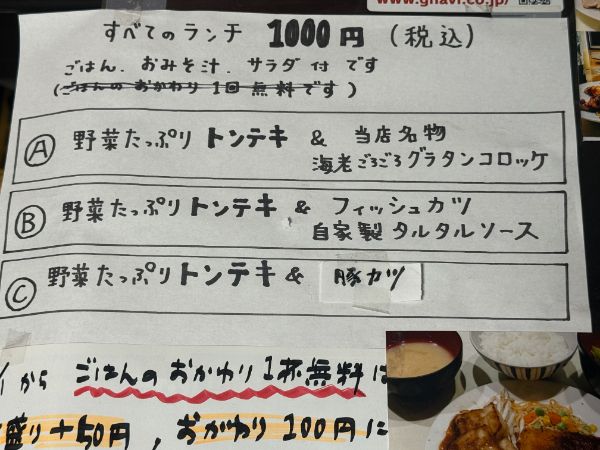 www.gnavi.co.jp/
すべてのランチ 1000円 (税込)
ごはん.おみそ汁.サラダ付です
(ごはんのおかわり1回無料です)
Ⓐ 野菜たっぷりトンテキ & 当店名物
海老ごろごろグラタンコロッケ
Ⓑ 野菜たっぷりトンテキ & フィッシュカツ
自家製タルタルソース
Ⓒ 野菜たっぷりトンテキ & 豚カツ
から ごはんのおかわり1杯無料は
盛り+50円, おかわり100円に